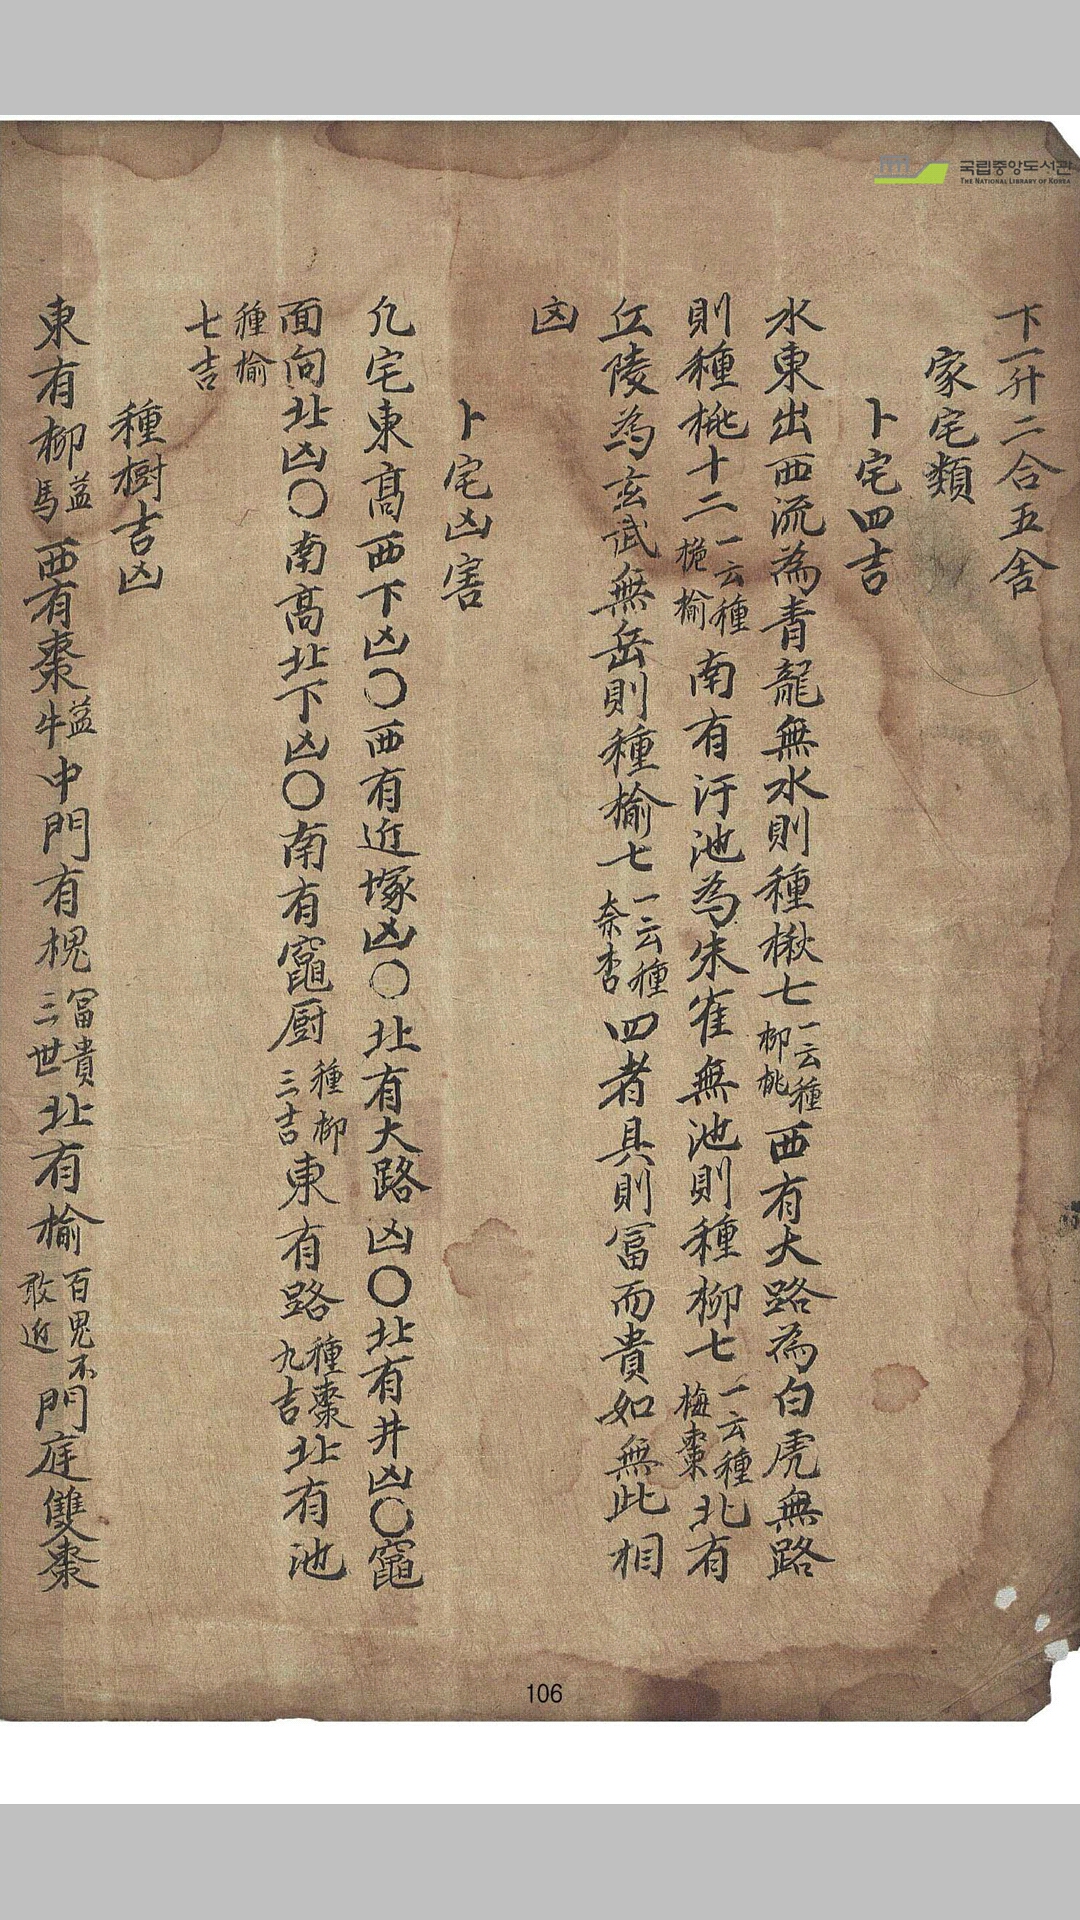 국립중앙도서관
THE NATIONAL LIBRARY OF KOREA
下一升二合五舍
家宅類
卜宅四吉
水東出西流為青龍無水則種楸七一云種柳桃西有大路為白虎無路
則種桃十二一云種梔榆南有汙池為朱雀無池則種柳七一云種梅棗北有
丘陵為玄武無岳則種榆七一云種柰杏四者具則冨而貴如無此相
凶
卜宅凶害
凢宅東髙西下凶〇西有近塚凶〇北有大路凶〇北有井凶〇竈
面向北凶〇南髙北下凶〇南有竈厨種柳三吉東有路種棗九吉北有池
種榆七吉
種樹吉凶
東有柳益馬西有棗益牛中門有槐冨貴三世北有榆百鬼不敢近門庭雙棗
106